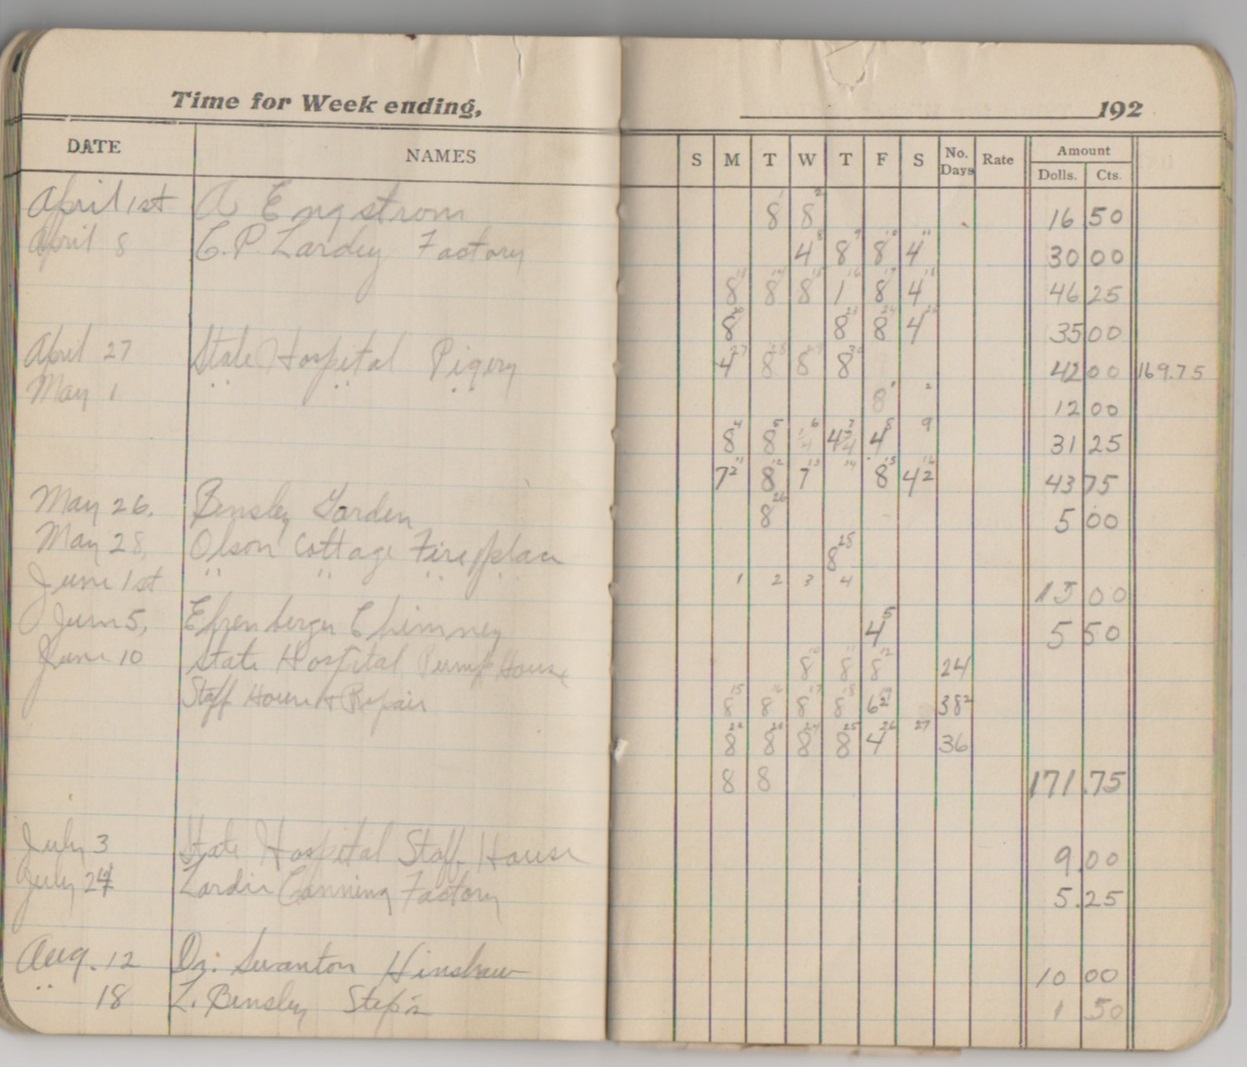 Time for Week ending, 192
DATE NAMES S M T W T F S No. Days Rate Amount Dolls. Cts.
April 1st A Engstrom 8 1 8 2 16 50
April 8 C.P Lardey Factory 4 8 8 9 8 10 4 11 30 00
8 13 8 14 8 15 1 16 8 17 4 18 46 25
8 20 8 23 8 24 4 25 35 00
April 27 State Hospital Pigery 4 27 8 28 8 29 8 30 42 00 169.75
May 1 " " " " 8 1 2 12 00
8 4 8 5 6 4 7 4 8 9 31 25
7 2 11 8 12 7 13 14 8 15 4 2 16 43 75
May 26. Bensley Garden 8 26 5 00
May 28, Olson Cottage Fireplace 8 28
June 1st " " " " 1 2 3 4 15 00
June 5, Efrenberger Chimney 4 5 5 50
June 10 State Hospital Pump House 8 10 8 11 8 12 24
Staff House & Repair 8 15 8 16 8 17 8 18 6 2 19 38 2
8 22 8 23 8 24 8 25 4 26 27 36
8 8 171.75
July 3 State Hospital Staff House 9.00
July 24 Lardie Canning Factory 5.25
Aug. 12 Dr. Swanton Hinshaw 10 00
" 18 L. Bensley Steps 1 50